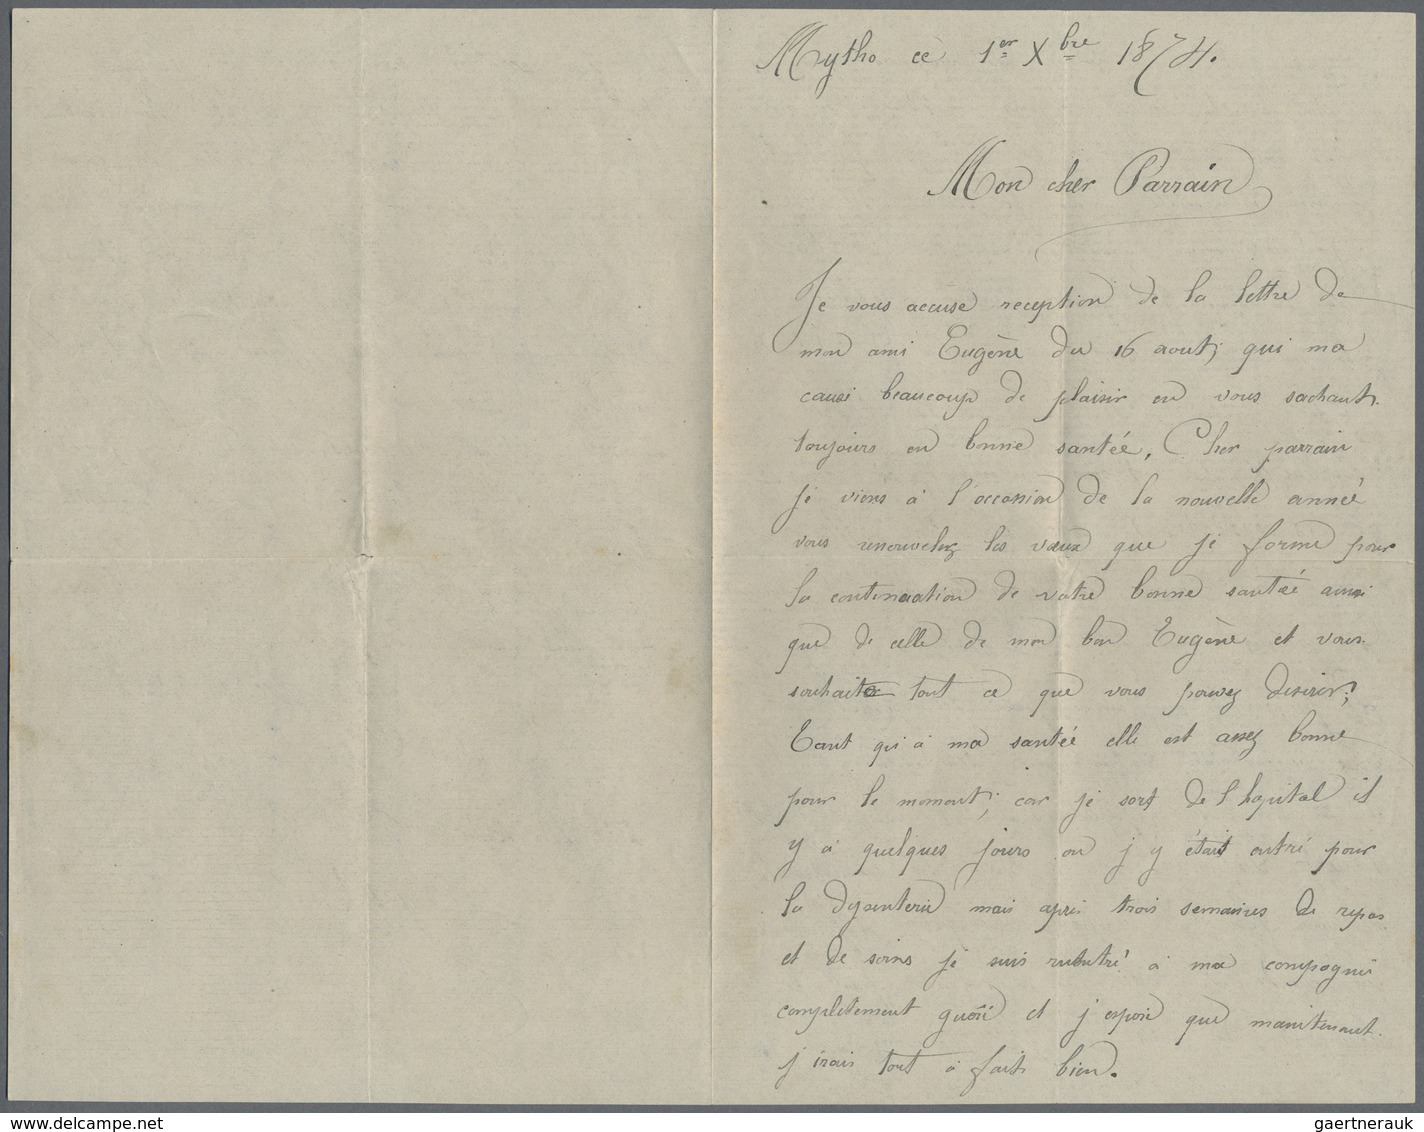 Mytho ce 1er Xbre 1874.
Mon cher Parrain
Je vous accuse reception de la lettre de
mon ami Eugène du 16 aout, qui ma
causé beaucoup de plaisir en vous sachant
toujours en bonne santée, Cher parrain
je viens à l'occasion de la nouvelle année
vous renouvelez les vœux que je forme pour
la continuation de votre bonne santée ainsi
que de celle de mon bon Eugène et vous
souhaite tout ce que vous pouvez desirer;
Tant qu'à ma santée elle est assez bonne
pour le moment; car je sort de l hopital il
y à quelques jours ou j y était entré pour
la dysenterie mais après trois semaines de repos
et de soins je suis rentré à ma compagnie
completement guéri et j'espère que maintenant
j irais tout à fait bien.
www.delcampe.net
gaertnerauk